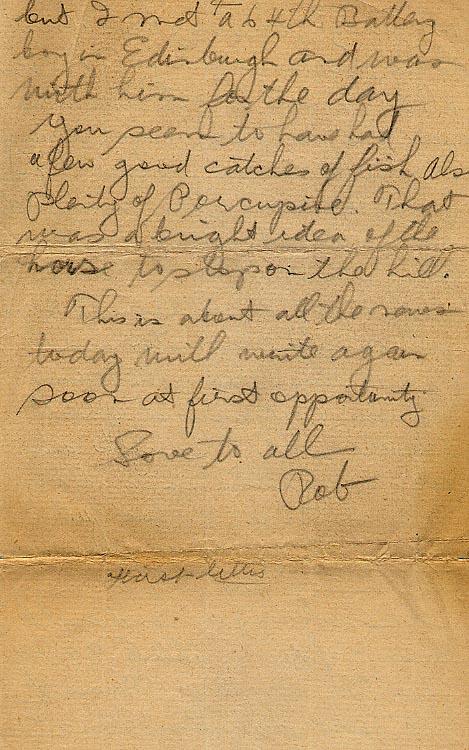 but I met a 64th Battery
boy in Edinburgh and was
with him for the day
You seem to have had
a few good catches of fish Als
plenty of Porcupine. That
was a bright idea of the
horse to stop on the hill.
This is about all the news
today will write again
soon at first opportunity
Love to all
Rob